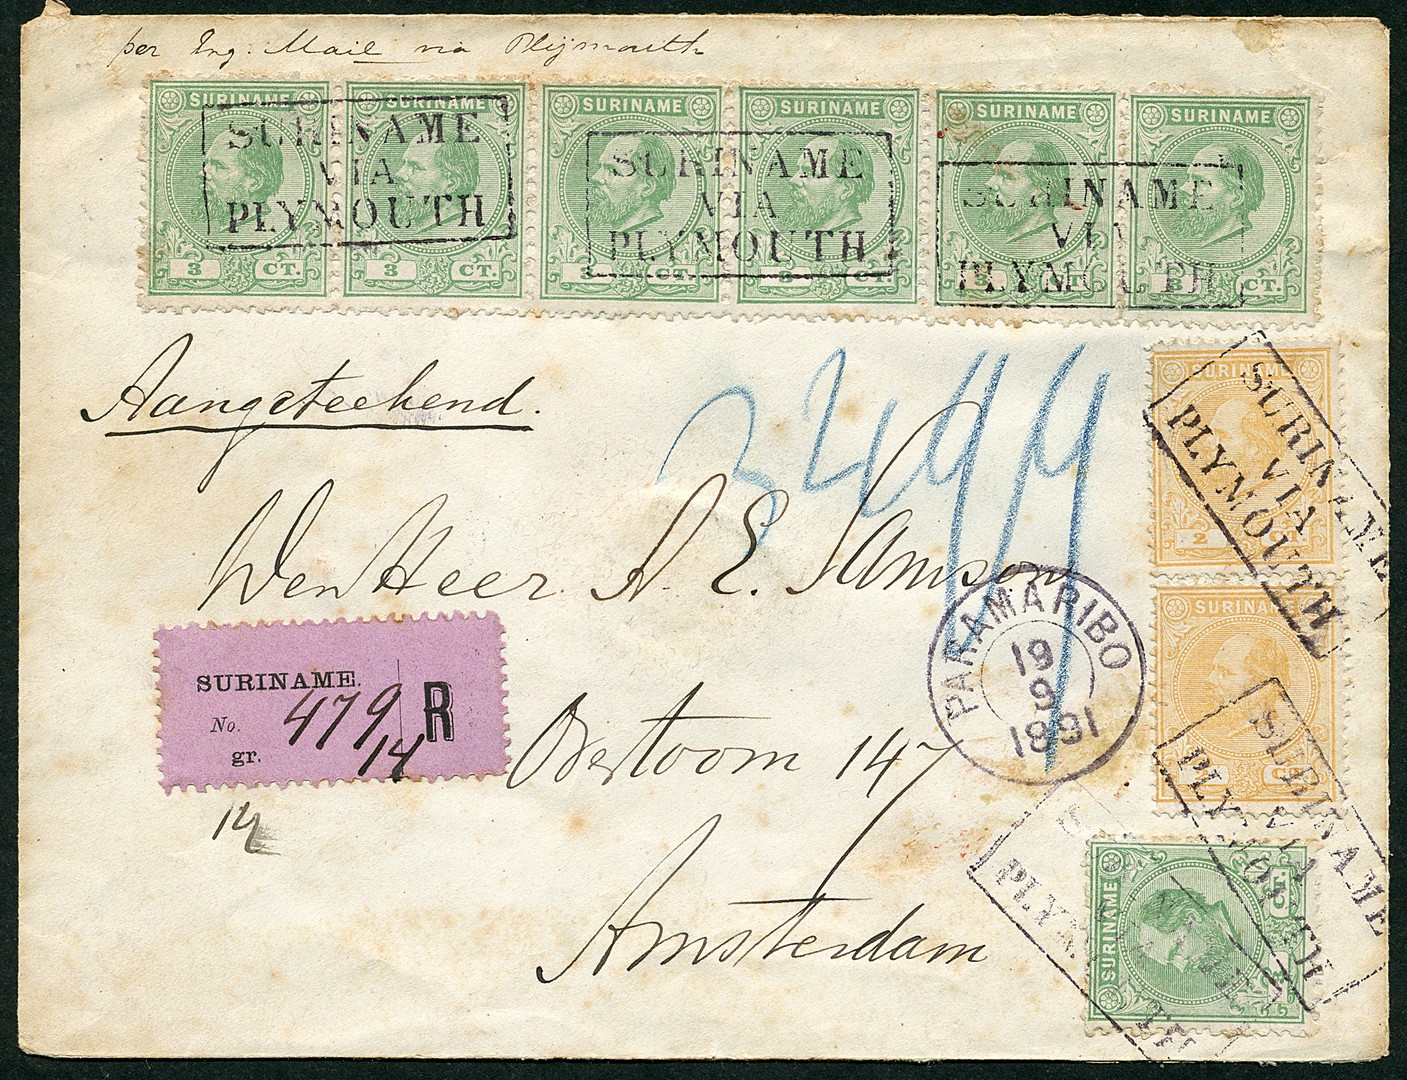 per Eng. Mail via Plijmouth
SURINAME SURINAME SURINAME SURINAME SURINAME SURINAME
3 CT. 3 CT. 3 CT. 3 CT. 3 CT. 3 CT.
SURINAME
VIA
PLYMOUTH
SURINAME
VIA
PLYMOUTH
SURINAME
VIA
PLYMOUTH
Aangeteekend.
3499
SURINAME
2
SURINAME
VIA
PLYMOUTH
Den Heer A. E. Samson
PARAMARIBO
19
9
1891
SURINAME
SURINAME
VIA
PLYMOUTH
SURINAME.
No. 479 R
gr. 14
14
Overtoom 147
Amsterdam
SURINAME
CT.
PLYM
TH